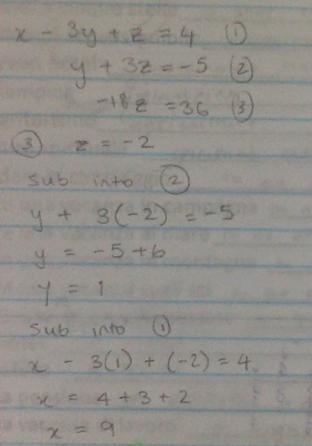 x - 3y + z = 4 ①
y + 3z = -5 ②
-18z = 36 ③
③ z = -2
sub into ②
y + 3(-2) = -5
y = -5 + 6
y = 1
sub into ①
x - 3(1) + (-2) = 4
x = 4 + 3 + 2
x = 9